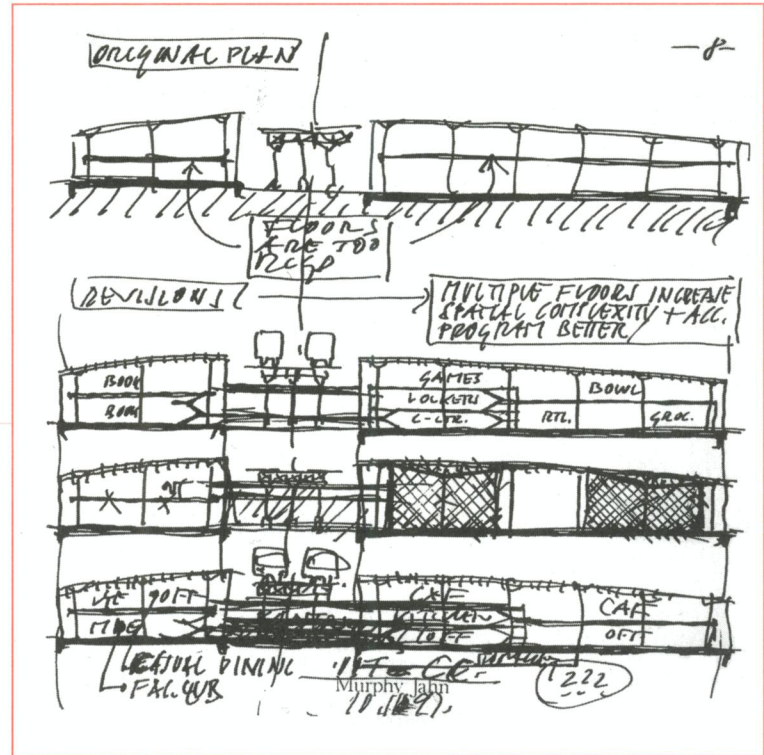 ORIGINAL PLAN
—8—
FLOORS
ARE TOO
RIGD
REVISIONS
MULTIPLE FLOORS INCREASE
SPATIAL COMPLEXITY + ACC.
PROGRAM BETTER
BOOK
BOOK
GAMES
LOCKERS
C-CTR.
BOWL
RTL.
GROC.
OFF
CAF
KITCHEN
OFF
CAF
OFF
CASUAL DINING
FAC. CLUB
IIT - CR.
Murphy Jahn
222